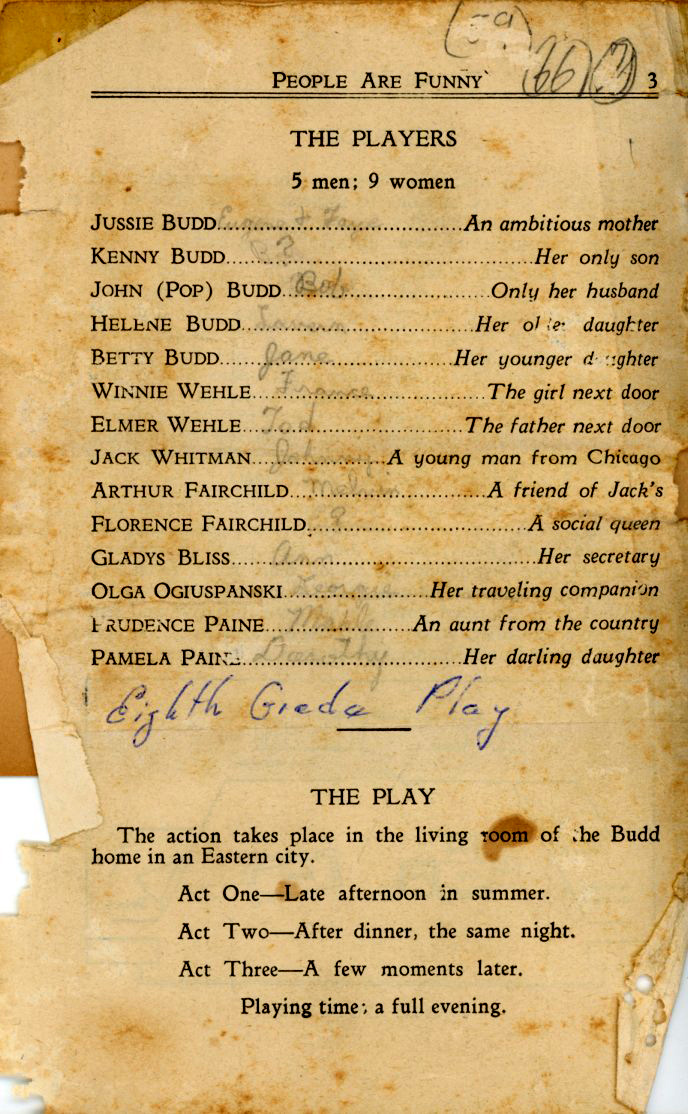 (59)
PEOPLE ARE FUNNY 66 3
THE PLAYERS
5 men; 9 women
JUSSIE BUDD Eugene & Faye An ambitious mother
KENNY BUDD ? Her only son
JOHN (POP) BUDD Bob Only her husband
HELENE BUDD Her older daughter
BETTY BUDD Jane Her younger daughter
WINNIE WEHLE France The girl next door
ELMER WEHLE Ted The father next door
JACK WHITMAN Johnny A young man from Chicago
ARTHUR FAIRCHILD Melvin A friend of Jack's
FLORENCE FAIRCHILD ? A social queen
GLADYS BLISS Ann Her secretary
OLGA OGIUSPANSKI Her traveling companion
PRUDENCE PAINE An aunt from the country
PAMELA PAINE Dorothy Her darling daughter
Eighth Grade Play
THE PLAY
The action takes place in the living room of the Budd
home in an Eastern city.
Act One—Late afternoon in summer.
Act Two—After dinner, the same night.
Act Three—A few moments later.
Playing time: a full evening.